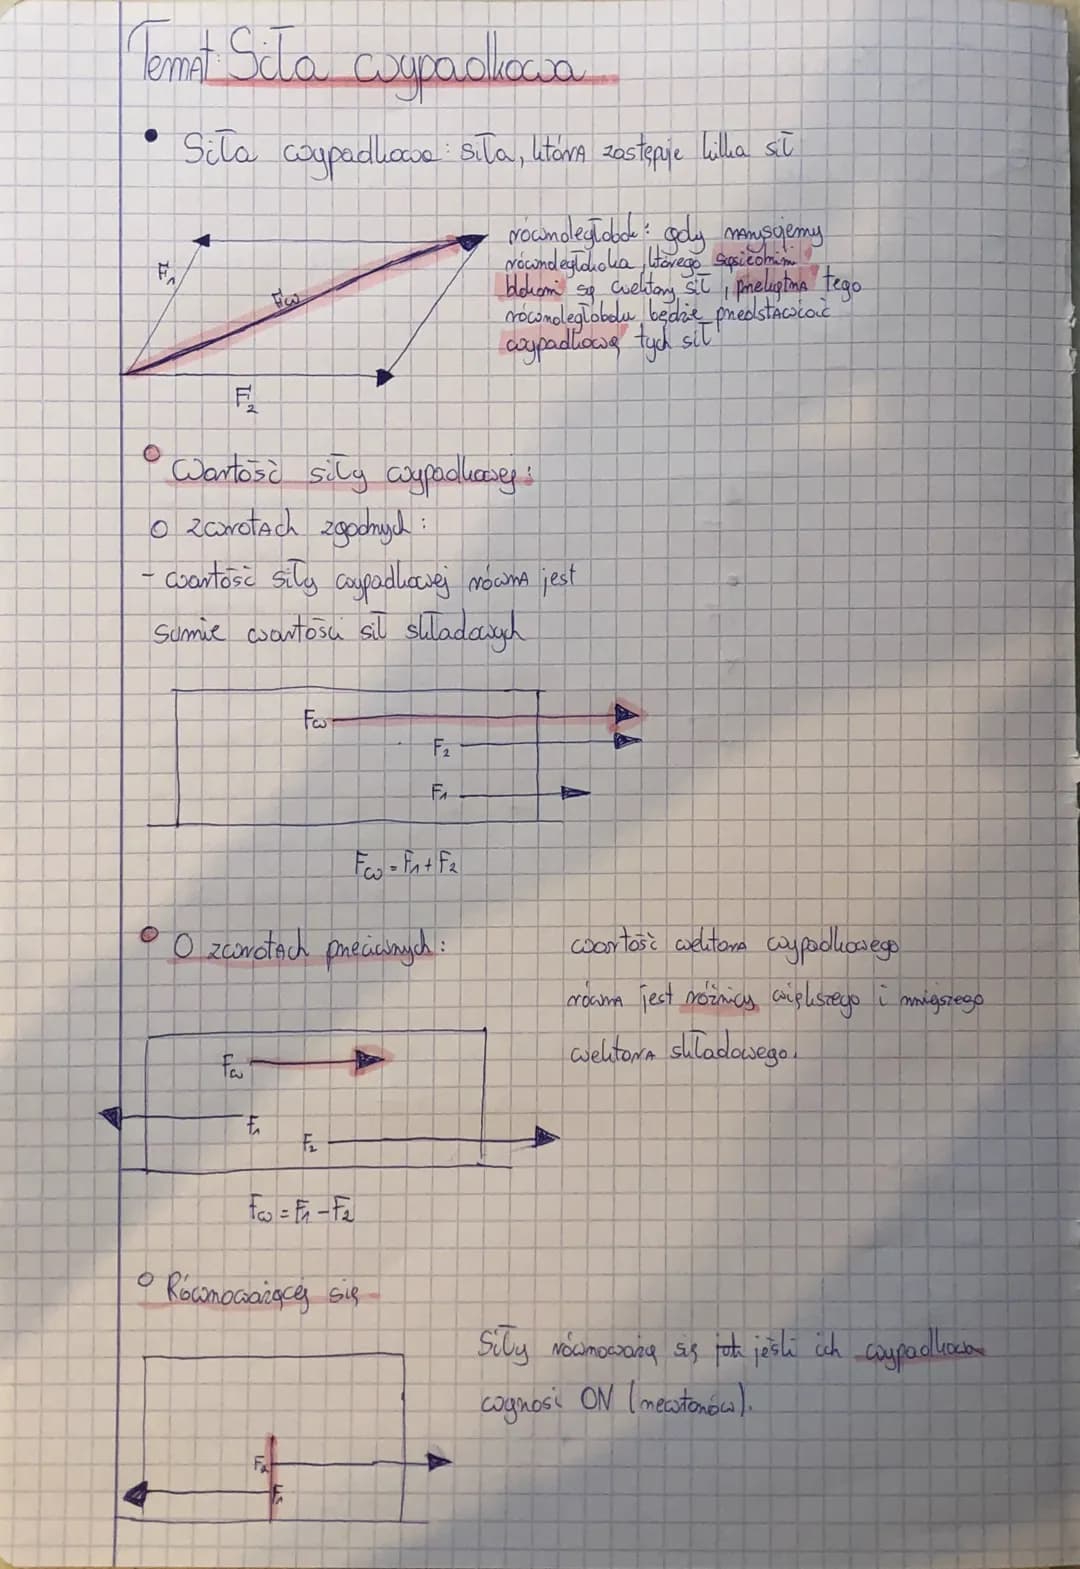 Temat: Siła wypadkowa
• Siła wypadkowa: siła, która zastępuje kilka sił
F₁
Fw
F₂
równoległobok: gdy narysujemy
równoległoboka, którego sąsiednimi
bokami są wektory sił, przekątna tego
równoległoboku będzie przedstawiać
wypadkową tych sił
Wartość siły wypadkowej:
O zwrotach zgodnych:
- wartość siły wypadkowej równa jest
sumie wartości sił składowych
Fw
F₂
F₁
Fw = F₁ + F₂
O zwrotach przeciwnych:
wartość wektora wypadkowego
równa jest różnicy większego i mniejszego
wektora składowego.
Fw
F₁
F₂
Fw = F₁ - F₂
Równoważącej się
Siły równoważą się jeśli ich wypadkowa
wynosi 0N (newtonów).
F₂
F₁